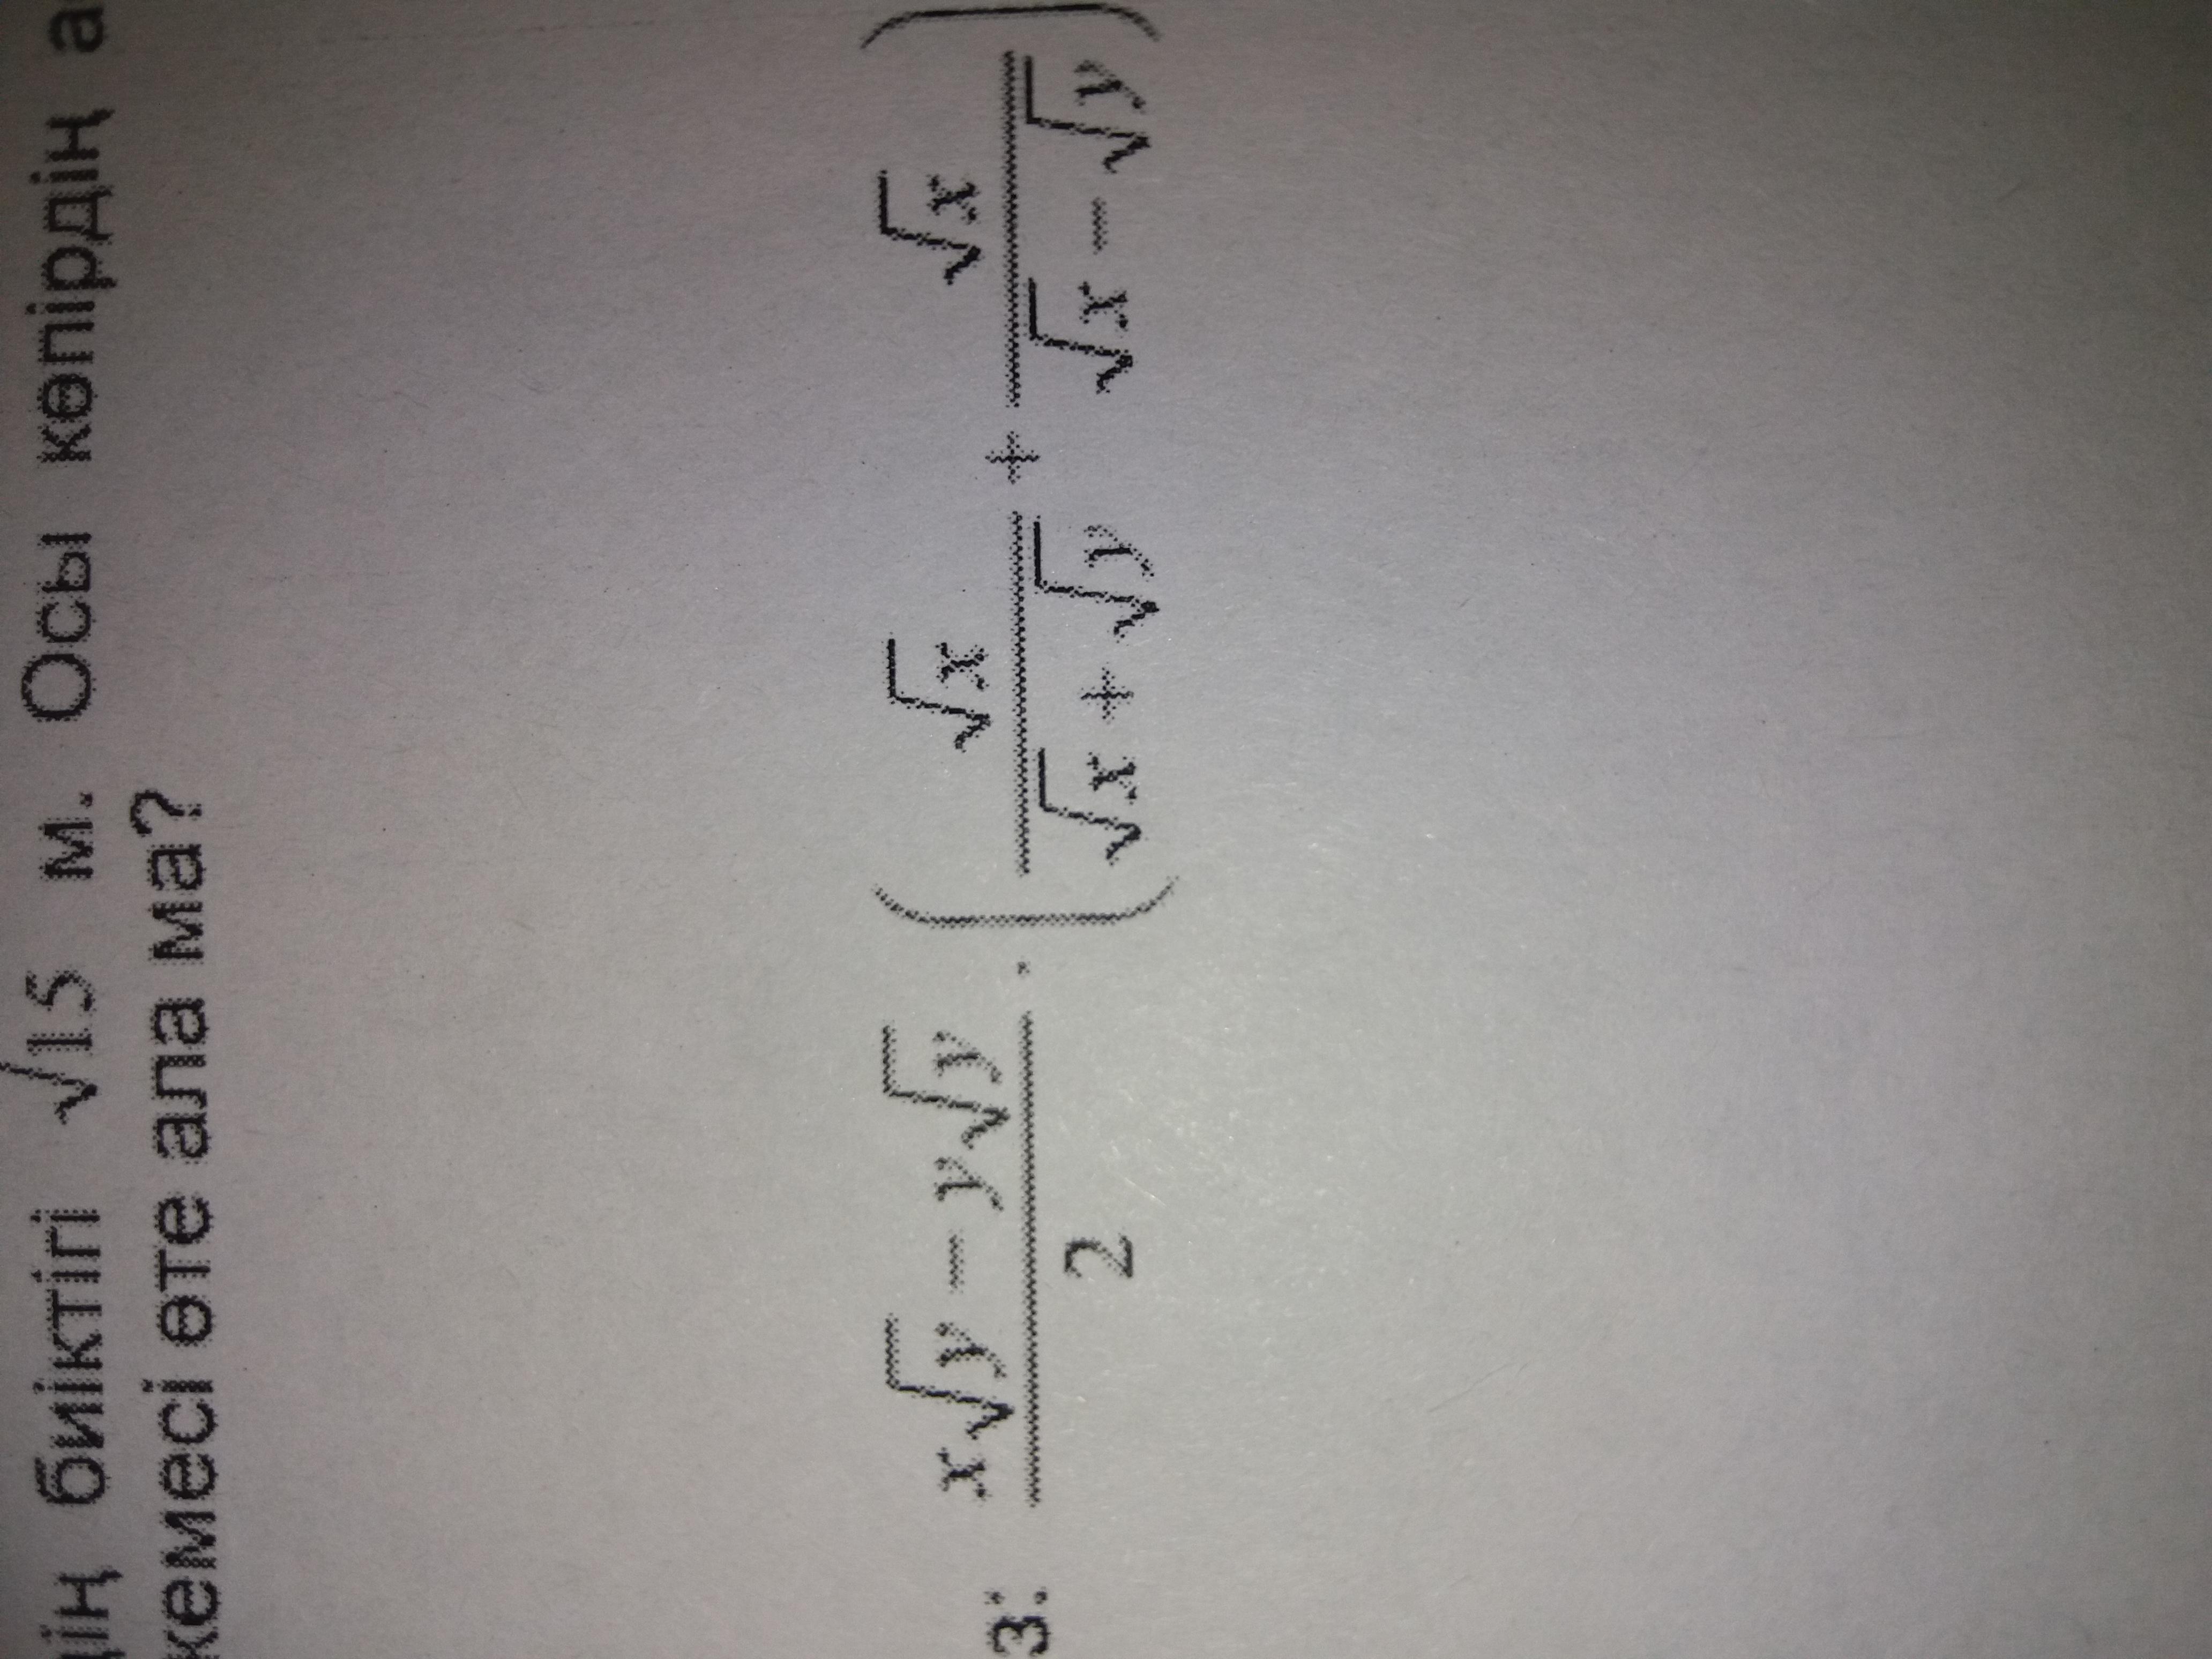 дің биіктігі √15 м. Осы көпірдің а
кемесі өте ала ма?
3: (x√y − y√y)/2 · (√x/(√x + √y) + √x/(√x − √y))